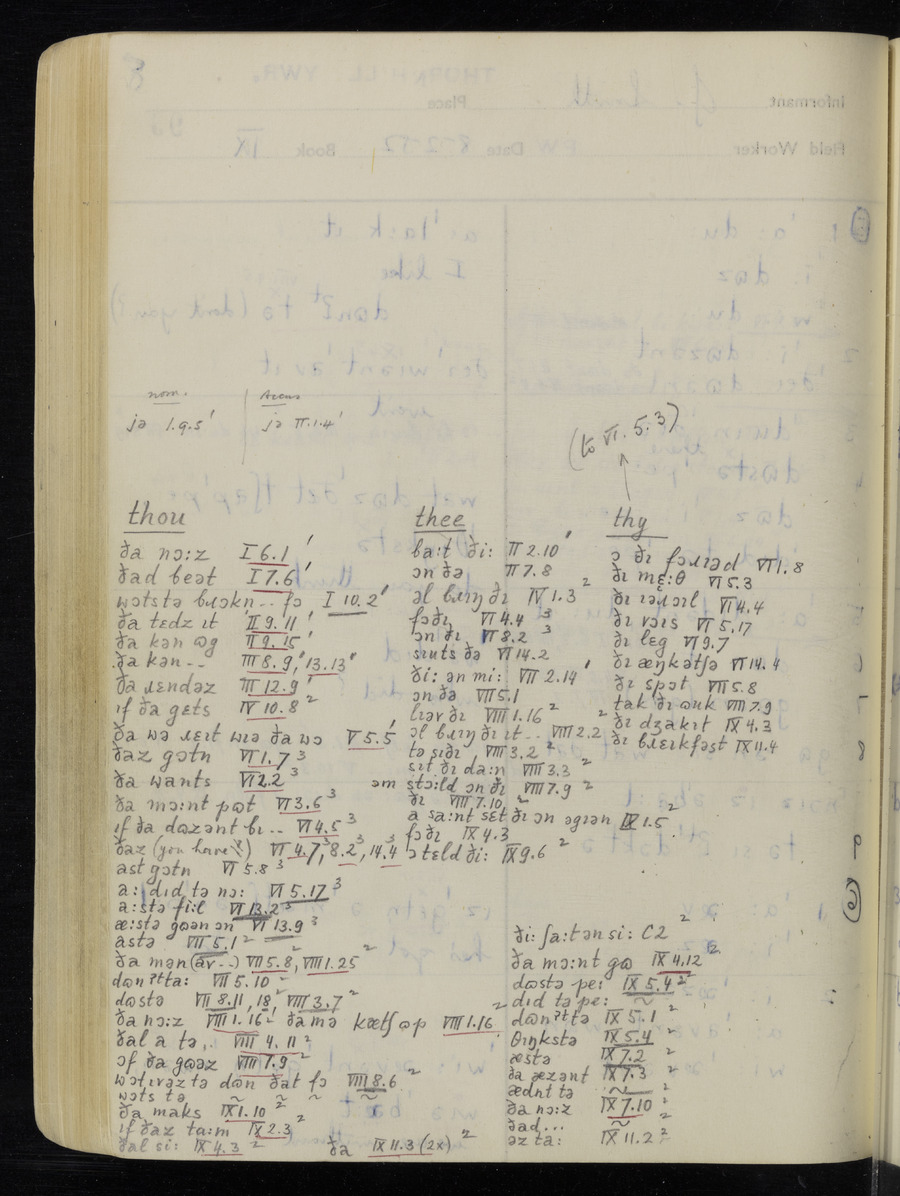 nom. Accus
jə I.9.5' jə II.1.4'
(to VI.5.3)
thou
ða nɔ:z I 6.1 '
ðad beət I 7.6 '
wɔtstə bɹɔkn -- fɔ I 10.2 '
ða tɛdz ɪt II 9.11 '
ða kən ɷg II 9.15 '
ða kən -- III 8.9,' 13.13 '
ða ɹɛndəz III 12.9 '
ɪf ða gɛts IV 10.8 2
ða wə ɹɛɪt wɪə ða wɔ V 5.5 '
ðaz gɔtn VI 1.7 3
ða wants VI 2.2 3
ða mɔ:nt pɷt VI 3.6 3
ɪf ða dɷzənt bɪ -- VI 4.5 3
ðaz (you have) VI 4.7,3 8.2,3 14.4 3
ast gɔtn VI 5.8 3
a: dɪd tə nɔ: VI 5.17 3
a:stə fi:l VI 13.2 3
æ:stə gɷən ɔn VI 13.9 3
astə VII 5.1 2
ða mən (av --) VII 5.8, 2 VIII 1.25 2
dɷnʔtta: VII 5.10 2
dɷstə VII 8.11, 18,2 VIII 3.7 2
ða nɔ:z VIII 1.16 2 ða mə kætʃ ɷp VIII 1.16 2
ðal a tə .. VIII 4.11 2
ɔf ða gɷəz VIII 7.9 2
wɔtɪvəz tə dɷn ðat fɔ VIII 8.6 2
wɔts tə ~ ~ ~ ~
ða maks IX 1.10 2
ɪf ðaz ta:m IX 2.3 2
ðal si: IX 4.3 2 ða IX 11.3 (2x) 2
thee
ba:t ði: II 2.10 '
ɔn ðə II 7.8
ɔl bɹɪŋ ðɪ IV 1.3 2
fɔðɪ VI 4.4 3
ɔn ðɪ VI 8.2 3
sɪuts ðə VI 14.2
ði: ən mi: VII 2.14 '
ɔn ðə VII 5.1
lɪəv ðɪ VIII 1.16 2
ɔl bɹɪŋ ðɪ ɪt -- VIII 2.2 2
tə sɪðɪ VIII 3.2 2
sɪt ðɪ da:n VIII 3.3 2
əm stɔ:ld ɔn ðɪ VIII 7.9 2
ðɪ VIII 7.10 2
a sa:nt sɛt ðɪ ɔn əgɪən IX 1.5 2
fɔðɪ IX 4.3
ɔ tɛld ði: IX 9.6 2
thy
ɔ ðɪ fɔɹɪəd VI 1.8
ðɪ mɛ:θ VI 5.3
ðɪ ɪəɹɔɪl VI 4.4
ðɪ vɔɪs VI 5.17
ðɪ lɛg VI 9.7
ðɪ æŋkətʃə VI 14.4
ðɪ spɔt VII 5.8
tak ðɪ ɷuk VIII 7.9
ðɪ dʒakɪt IX 4.3
ðɪ bɹɛɪkfəst IX 11.4
ði: ʃa:tən si: C2 2
ða mɔ:nt gɷ IX 4.12 2
dɷstə pe: IX 5.4 2
dɪd tə pe: ~
dɷnʔttə IX 5.1 2
θɪŋkstə IX 5.4 2
æstə IX 7.2 2
ða æzənt IX 7.3 2
ædnt tə ~ 2
ða nɔ:z IX 7.10 2
ðad... ~ 2
əz ta: IX 11.2 2